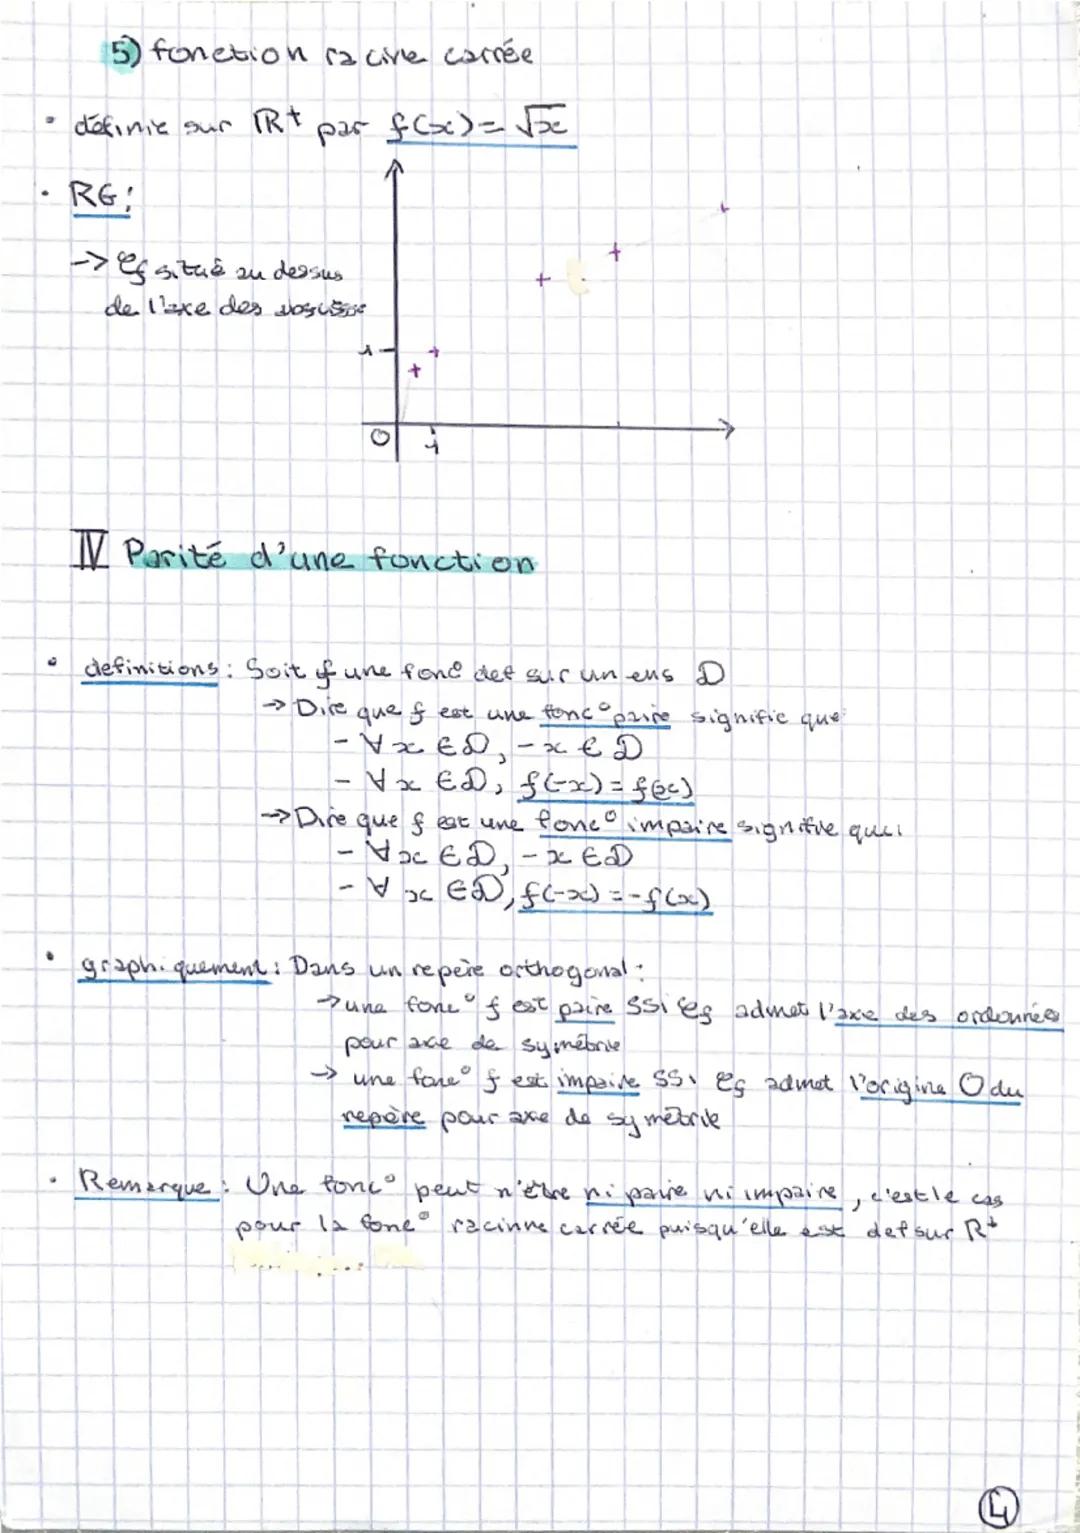 5) fonction racine carrée
• définie sur ℝ+ par f(x) = √x
• RG:
-> Cf située au dessus
de l'axe des abscisse
1
0 1
IV Parité d'une fonction
• definitions: Soit f une fonc° def sur un ens D
-> Dire que f est une fonc° paire signifie que
- ∀ x ∈ D, - x ∈ D
- ∀ x ∈ D, f(-x) = f(x)
-> Dire que f est une fonc° impaire signifie que:
- ∀ x ∈ D, - x ∈ D
- ∀ x ∈ D, f(-x) = -f(x)
• graphiquement: Dans un repère orthogonal:
-> une fonc° f est paire SSi Cf admet l'axe des ordonnées
pour axe de symétrie
-> une fonc° f est impaire SSi Cf admet l'origine O du
repère pour axe de symétrie
• Remarque: Une fonc° peut n'être ni paire ni impaire, c'est le cas
pour la fonc° racinne carrée puisqu'elle est def sur R+
4